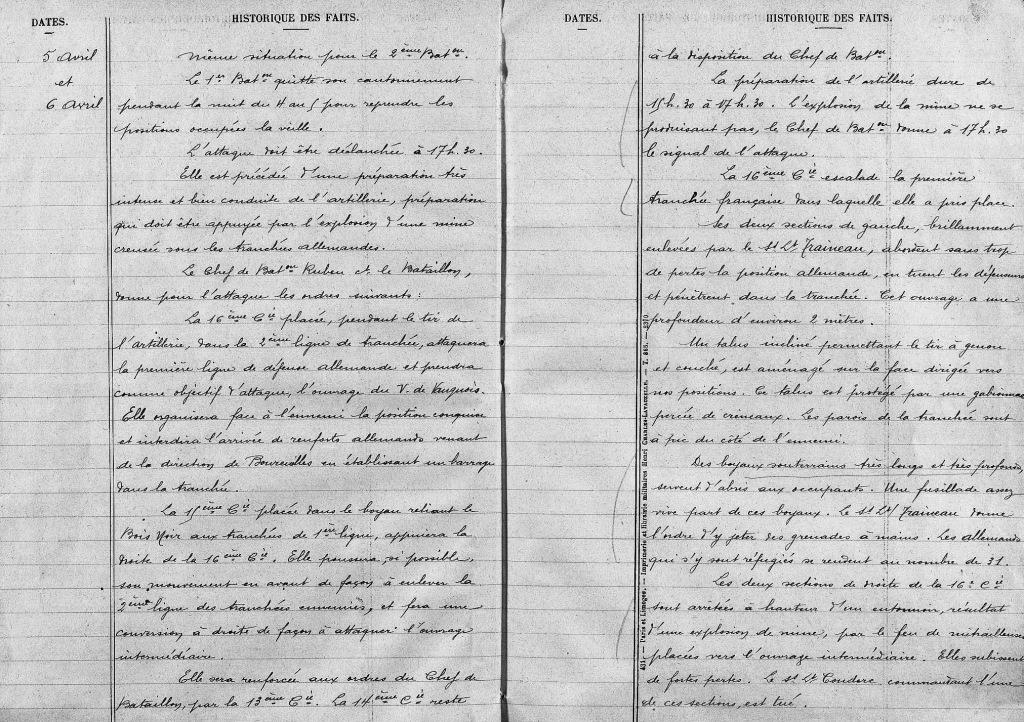 DATES.
HISTORIQUE DES FAITS.
5 Avril
et
6 Avril
Même situation pour le 2ème Baton.
Le 1er Baton quitte son cantonnement
pendant la nuit du 4 au 5 pour reprendre les
positions occupées la veille.
L'attaque doit être déclanchée à 17h.30.
Elle est précédée d'une préparation très
intense et bien conduite de l'artillerie, préparation
qui doit être appuyée par l'explosion d'une mine
creusée sous les tranchées allemandes.
Le Chef de Baton Ruben ct. le Bataillon,
donne pour l'attaque les ordres suivants :
La 16ème Cie placée, pendant le tir de
l'artillerie, dans la 2ème ligne de tranchée, attaquera
la première ligne de défense allemande et prendra
comme objectif d'attaque, l'ouvrage du V. de Vauquois.
Elle organisera face à l'ennemi la position conquise
et interdira l'arrivée de renforts allemands venant
de la direction de Boureuilles en établissant un barrage
dans la tranchée.
La 15ème Cie placée dans le boyau reliant le
Bois Noir aux tranchées de 1ère ligne, appuiera la
droite de la 16ème Cie. Elle poussera, si possible,
son mouvement en avant de façon à enlever la
2ème ligne des tranchées ennemies, et fera une
conversion à droite de façon à attaquer l'ouvrage
intermédiaire.
Elle sera renforcée aux ordres du Chef de
Bataillon, par la 13ème Cie. La 14ème Cie reste
DATES.
HISTORIQUE DES FAITS.
à la disposition du Chef de Baton.
La préparation de l'artillerie dure de
15h.30 à 17h.30. L'explosion de la mine ne se
produisant pas, le Chef de Baton donne à 17h.30
le signal de l'attaque.
La 16ème Cie escalade la première
tranchée française dans laquelle elle a pris place.
Les deux sections de gauche, brillamment
enlevées par le St Lt Traineau, abordent sans trop
de pertes la position allemande, en tuent les défenseurs
et pénètrent dans la tranchée. Cet ouvrage a une
profondeur d'environ 2 mètres.
Un talus incliné permettant le tir à genou
et couché, est aménagé sur la face dirigée vers
nos positions. Ce talus est protégé par une gabionnade
percée de créneaux. Les parois de la tranchée sont
à pic du côté de l'ennemi.
Des boyaux souterrains très longs et très profonds,
servent d'abris aux occupants. Une fusillade assez
vive part de ces boyaux. Le St Lt Traineau donne
l'ordre d'y jeter des grenades à mains. Les allemands
qui s'y sont réfugiés se rendent au nombre de 31.
Les deux sections de droite de la 16e Cie
sont arrêtées à hauteur d'un entonnoir, résultat
d'une explosion de mine, par le feu de mitrailleuses
placées vers l'ouvrage intermédiaire. Elles subissent
de fortes pertes. Le St Lt Couderc commandant l'une
de ces sections, est tué.
Paris et Limoges. — Imprimerie et librairie militaires Henri Charles-Lavauzelle.